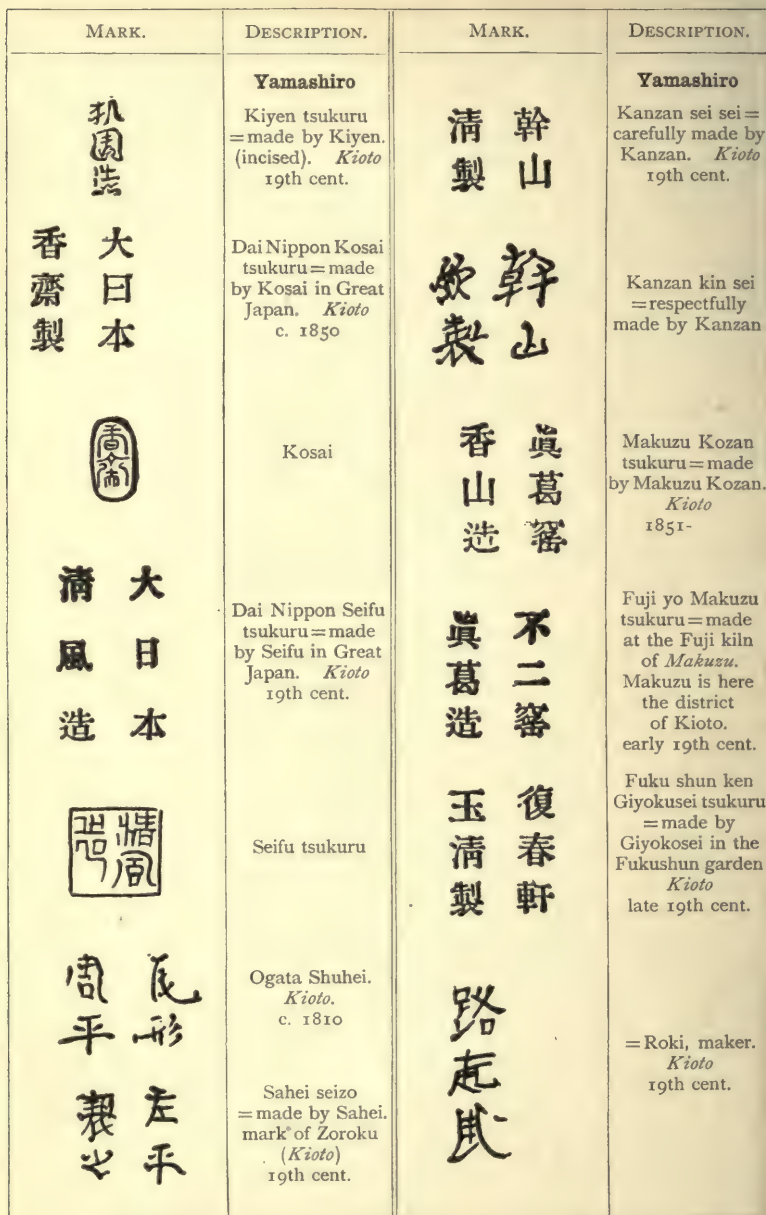 MARK.
DESCRIPTION.
Yamashiro
園造
Kiyen tsukuru
=made by Kiyen.
(incised). Kioto
19th cent.
大日本
香齋製
Dai Nippon Kosai
tsukuru=made
by Kosai in Great
Japan. Kioto
c. 1850
香齋
Kosai
大日本
清風造
Dai Nippon Seifu
tsukuru=made
by Seifu in Great
Japan. Kioto
19th cent.
清風
造
Seifu tsukuru
尾形
周平
Ogata Shuhei.
Kioto.
c. 1810
左平
製之
Sahei seizo
=made by Sahei.
mark of Zoroku
(Kioto)
19th cent.
MARK.
DESCRIPTION.
Yamashiro
幹山
清製
Kanzan sei sei=
carefully made by
Kanzan. Kioto
19th cent.
幹山
欽製
Kanzan kin sei
=respectfully
made by Kanzan
眞葛窯
香山造
Makuzu Kozan
tsukuru=made
by Makuzu Kozan.
Kioto
1851-
不二窯
眞葛造
Fuji yo Makuzu
tsukuru=made
at the Fuji kiln
of Makuzu.
Makuzu is here
the district
of Kioto.
early 19th cent.
復春軒
玉清製
Fuku shun ken
Giyokusei tsukuru
=made by
Giyokosei in the
Fukushun garden
Kioto
late 19th cent.
路
=Roki, maker.
Kioto
19th cent.